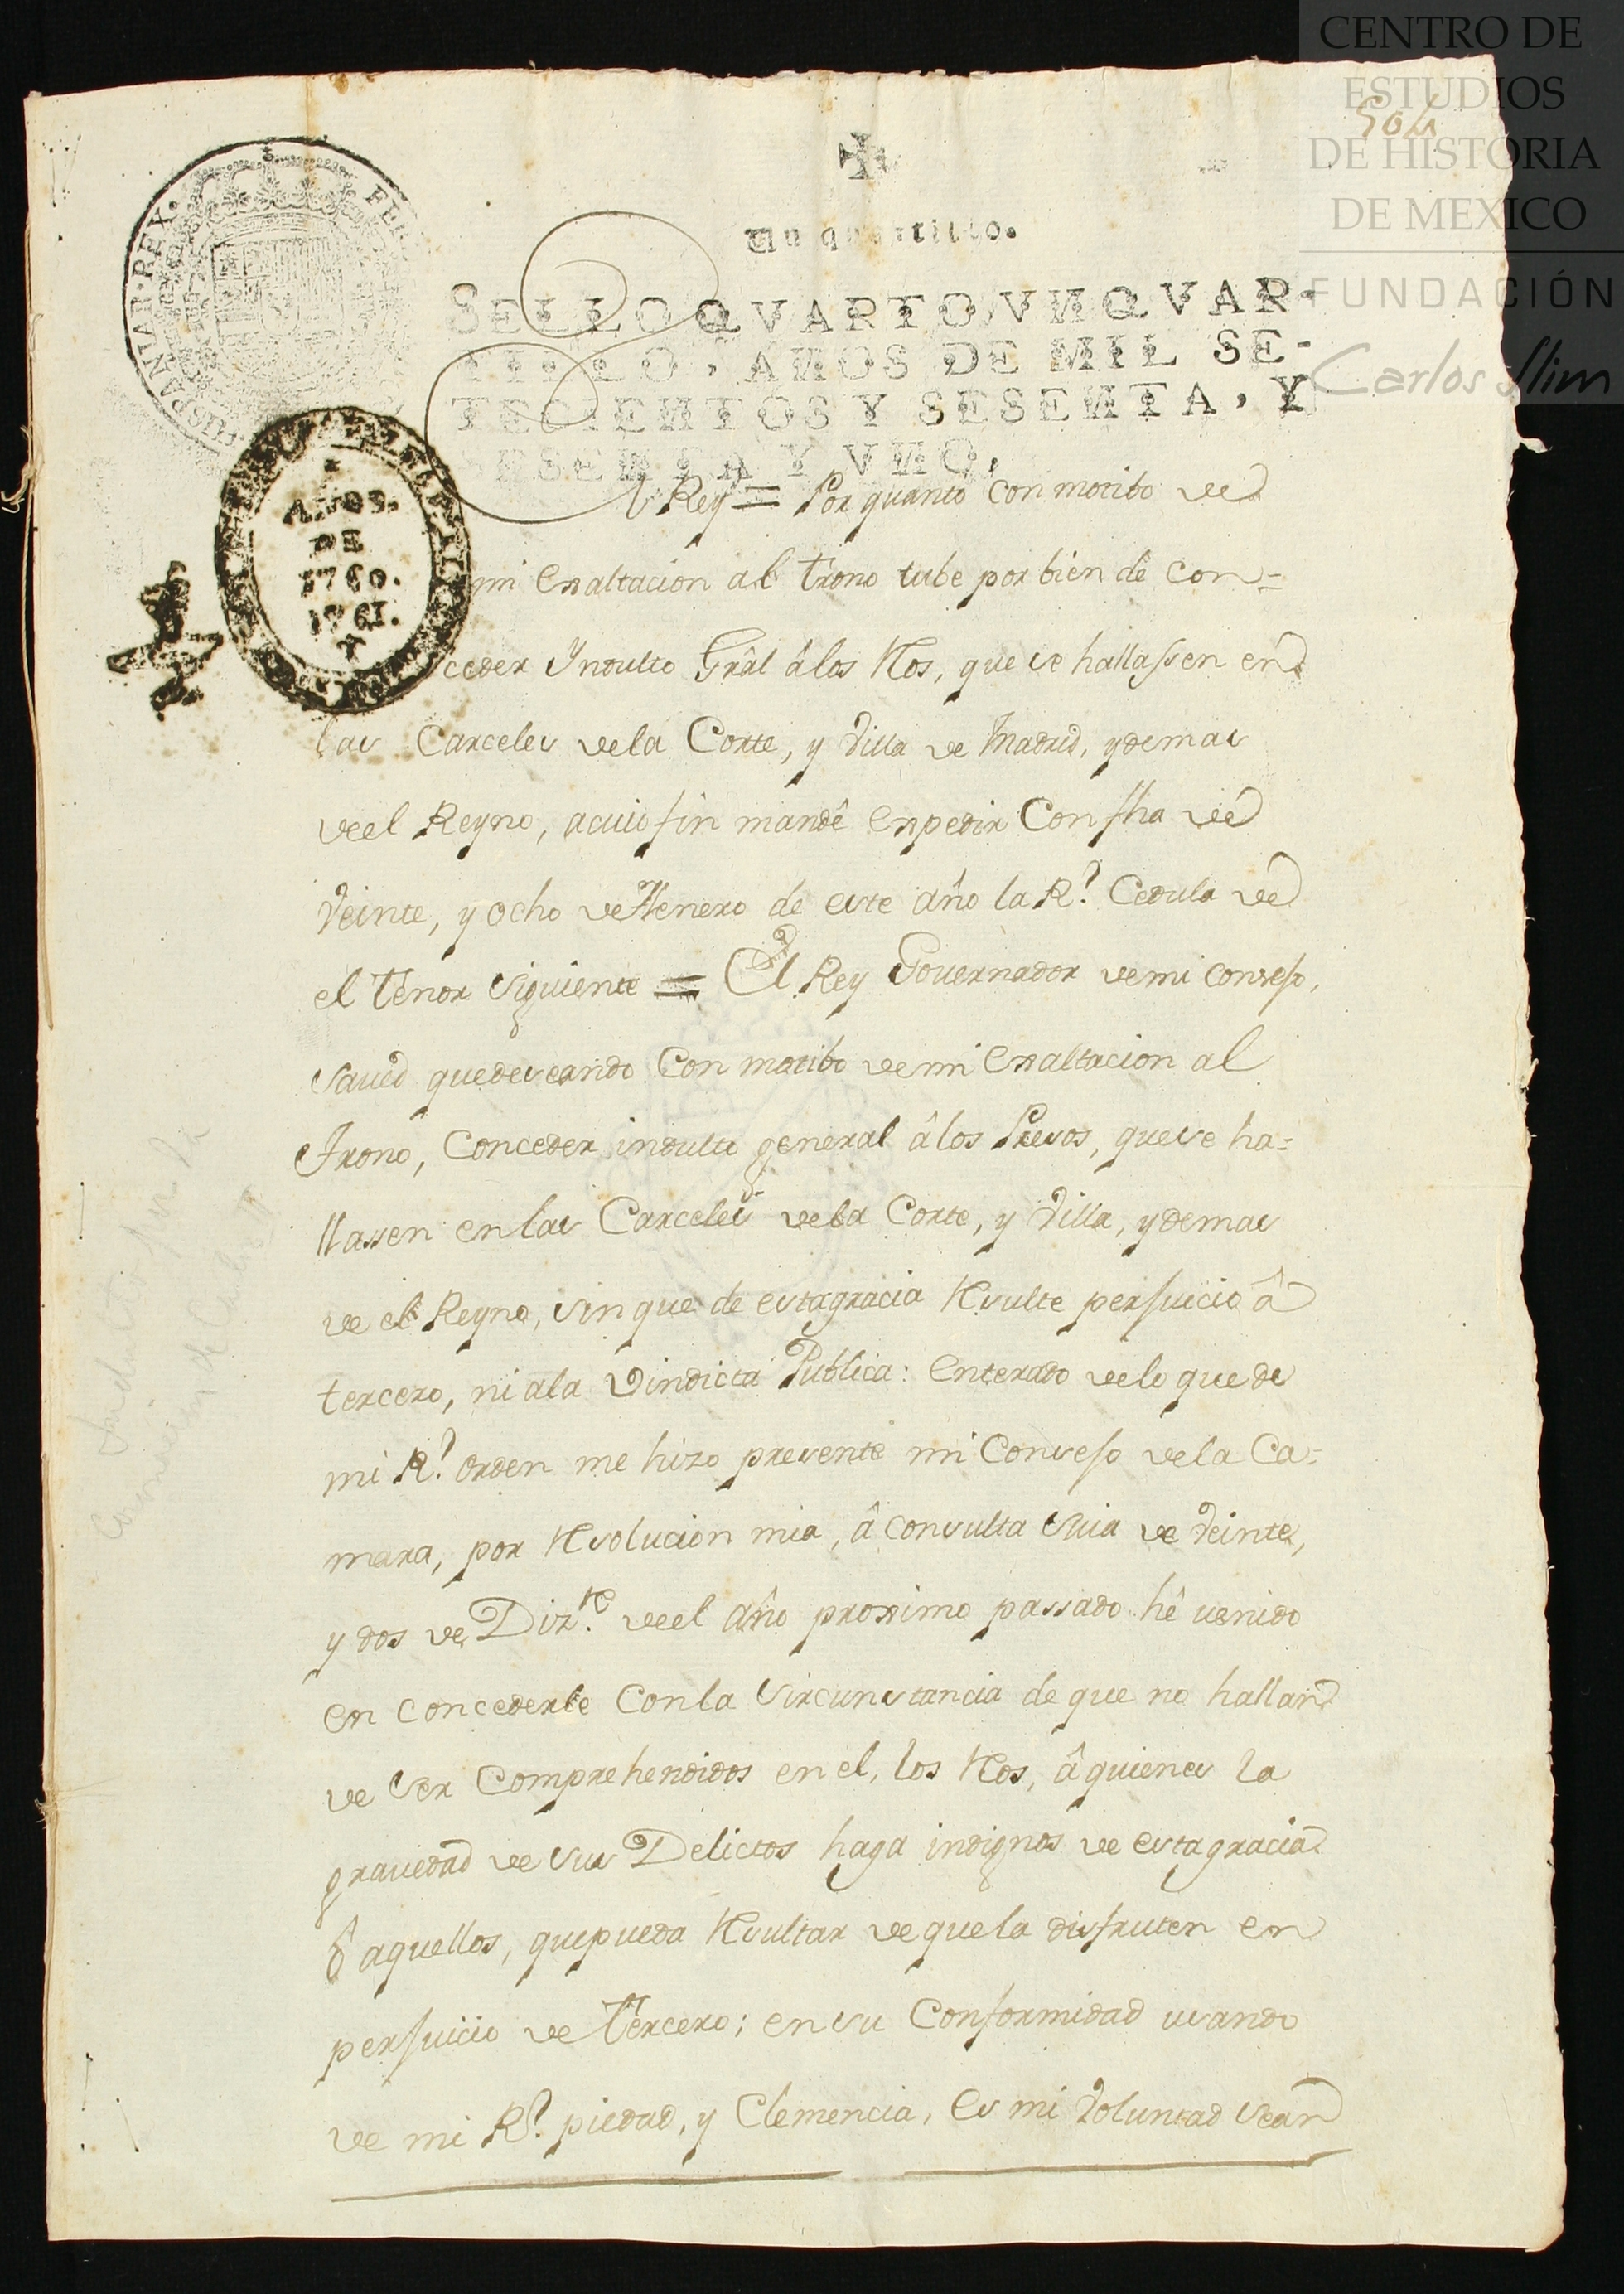 CENTRO DE
ESTUDIOS
DE HISTORIA
DE MEXICO
FUNDACIÓN
Carlos Slim
Un quartillo.
SELLO QVARTO, VN QVAR-
TILLO, AÑOS DE MIL SE-
TECIENTOS Y SESENTA, Y
SESENTA Y VNO.
HISPANIAR. REX.
AÑOS.
DE
1760.
1761.
El Rey = Por quanto con motibo de
mi exaltacion al trono tube por bien de con=
ceder Yndulto Grâl â los Reos, que se hallassen en
las Carceles de la Corte, y Villa de Madrid, y demas
de el Reyno, a cuio fin mandê expedir con fha de
Veinte, y ocho de Henero de este año la Rl. Cedula de
el tenor siguiente = El Rey Governador de mi consejo,
saued que deseando con motibo de mi exaltacion al
Trono, conceder indulto general â los Presos, que se ha=
llassen en las Carceles de la Corte, y Villa, y demas
de el Reyno, sin que de esta gracia resulte perjuicio â
tercero, ni a la Vindicta Publica: enterado de lo que de
mi Rl. orden me hizo presente mi Consejo de la Ca=
mara, por resolucion mia, â consulta suia de Veinte,
y dos de Dizre. de el año proximo passado hê uenido
en concederle con la sircunstancia de que no hallan
de ser comprehendidos en el, los Reos, â quienes la
grauedad de sus Delictos haga indignos de esta gracia
ô aquellos, que pueda resultar de que la disfruten en
perjuicio de tercero; en su conformidad usando
de mi Rl. piedad, y Clemencia, es mi Voluntad sean